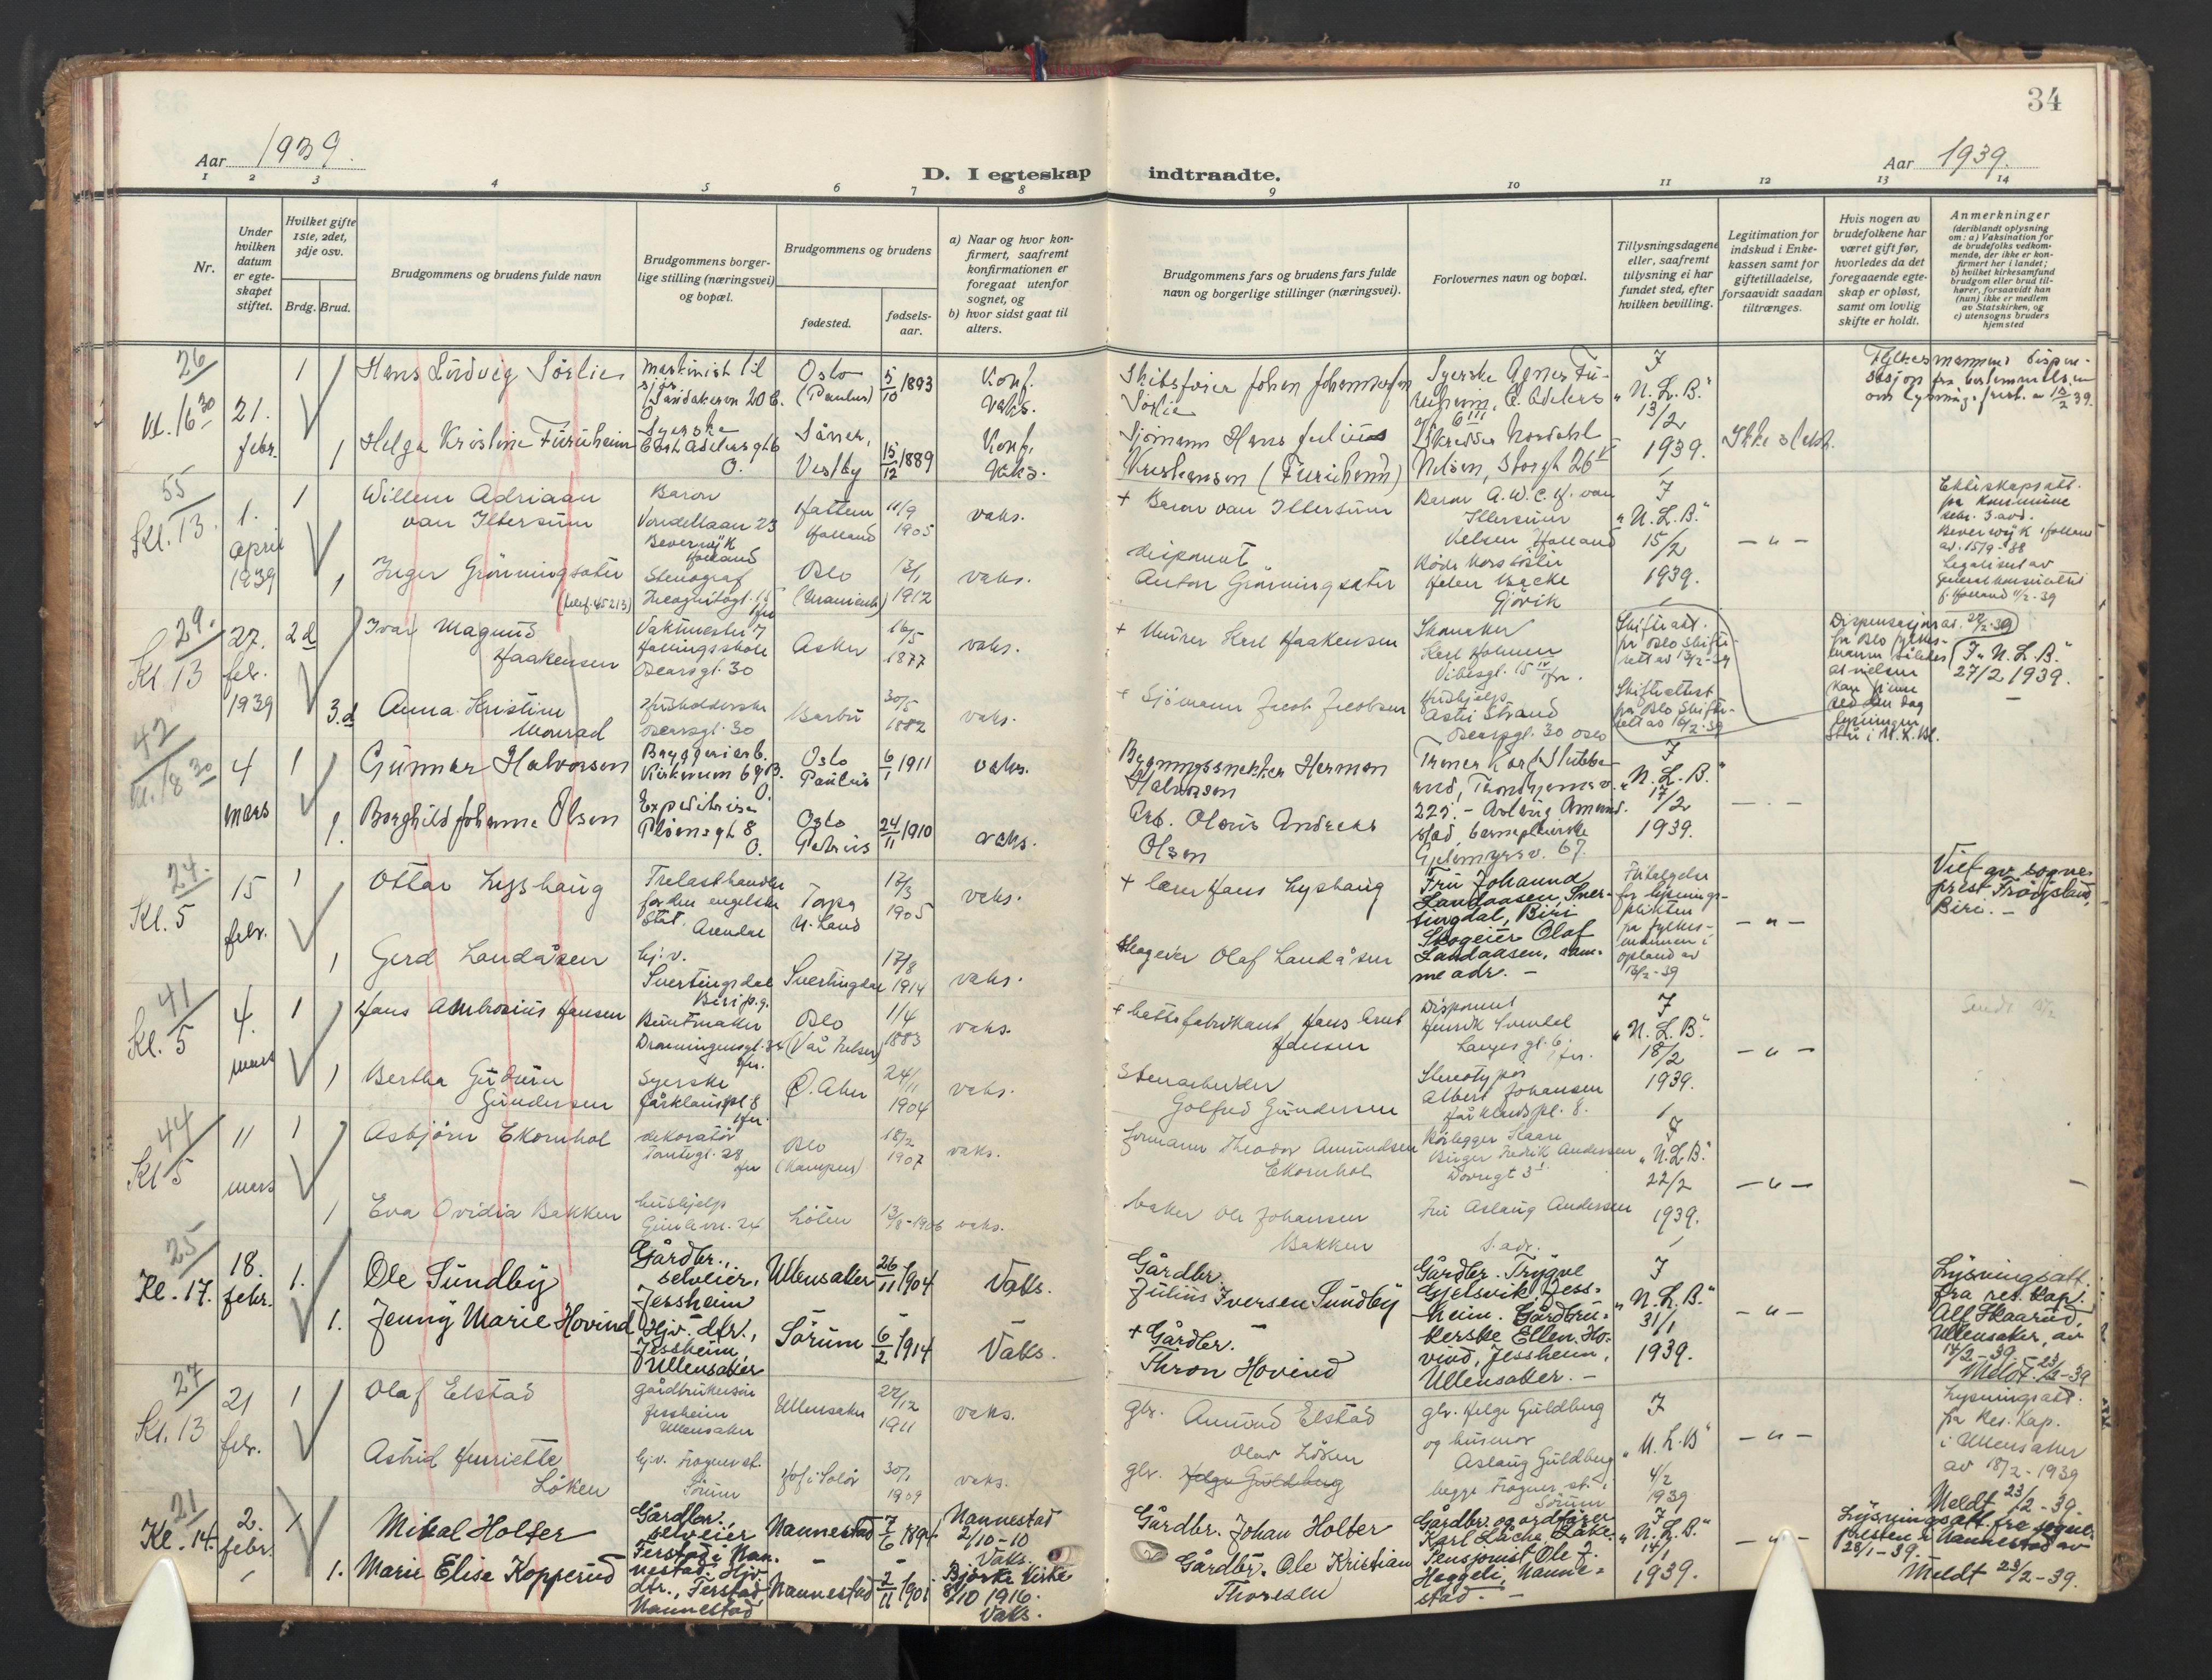 34
Aar 1939.
D. I egteskap indtraadte.
Aar 1939.
1 2 3 4 5 6 7 8 9 10 11 12 13 14
Nr.
Under hvilken datum er egteskapet stiftet.
Hvilket gifte 1ste, 2det, 3dje osv.
Brdg. Brud.
Brudgommens og brudens fulde navn
Brudgommens borgerlige stilling (næringsvei) og bopæl.
Brudgommens og brudens
fødested.
fødselsaar.
a) Naar og hvor konfirmert, saafremt konfirmationen er foregaat utenfor sognet, og
b) hvor sidst gaat til alters.
Brudgommens fars og brudens fars fulde navn og borgerlige stillinger (næringsvei).
Forlovernes navn og bopæl.
Tillysningsdagene eller, saafremt tillysning ei har fundet sted, efter hvilken bevilling.
Legitimation for indskud i Enkekassen samt for giftetilladelse, forsaavidt saadan tiltrænges.
Hvis nogen av brudefolkene har været gift før, hvorledes da det foregaaende egteskap er opløst, samt om lovlig skifte er holdt.
Anmerkninger (deriblandt oplysning om: a) Vaksination for de brudefolks vedkommende, der ikke er konfirmert her i landet; b) hvilket kirkesamfund brudgom eller brud tilhører, forsaavidt han (hun) ikke er medlem av Statskirken, og c) utensogns bruders hjemsted
26
21. febr.
1
Hans Ludvig Sørlie
Maskinist til sjøs
Oslo (Paulus)
5/10 1893
Konf. Vaks.
Johan Johannesen Sørlie
Syerske Agnes
I "N. L. B." 13/2 1939.
1
Helga Kristine Furuheim
Syerske
Såner, Vestby
15/12 1889
Konf. Vaks.
Sjømann Hans Julius Kristiansen (Furuheim)
Nilsen, Storgt 26
55
Kl. 13.
1. april 1939
1
Willem Adriaan van Ittersum
Baron
Beverwijk Holland
Hattem Holland
11/9 1905
vaks.
+ Baron van Ittersum
Baron A. W. C. H. van Ittersum
Velsen Holland
I "N. L. B." 15/2 1939.
— " —
1
Inger Grönningsæter
(telef. 45213)
Stenograf
Oslo (Uranienb)
13/1 1912
vaks.
disponent Anton Grönningsæter
Røde Kors søster Helen Bache Gjøvik
29.
Kl 13
27. feb. 1939
2d
Ivar Magnus Haakensen
Vaktmester
Oscarsgt. 30
Asker
16/5 1877
vaks.
+ Murer Karl Haakensen
Skomaker Karl Holmen
Vibesgt. 15
Skifteatt. fra Oslo skifterett av 13/2-39
"N. L. B." 27/2 1939.
3.d
Anna Kristine Monrad
Husholderske
Oscarsgt. 30
Barbu
30/5 1882
vaks.
+ Sjømann Jacob Jacobsen
Hushjelp Astri Strand
Oscarsgt. 30 Oslo
Skifteattest fra Oslo skifterett av 16/2-39
42
4 mars
1
Gunnar Halvorsen
Bryggeriarb.
Oslo Paulus
6/1 1911
vaks.
Bygningssnekker Herman Halvorsen
I "N. L. B." 17/2 1939.
1.
Borghild Johanne Olsen
Oslo Petrus
24/11 1910
vaks.
Arb. Olaus Andreas Olsen
24.
Kl. 5
15 febr.
1
Ottar Lyshaug
Trelasthandler for den engelske stat. Arendal
Torpa N. Land
12/3 1905
vaks.
+ lærer Hans Lyshaug
Fru Johanna Landaasen, Snertingdal, Biri
Skogeier Olaf Landaasen, samme adr. —
— " —
Viet av sogneprest Frøysland, Biri. —
1
Gerd Landåsen
hj.v.
Snertingdal Biri p.g.
Snertingdal
17/8 1914
vaks.
Skogeier Olaf Landåsen
41
Kl. 5
4. mars
1
Hans Ambrosius Hansen
Buntmaker
Dronningensgt. 34
Oslo (Vår Frelser)
1/4 1883
vaks.
+ hattefabrikant Hans Arnt Hansen
Disponent Henrik Svendal
Langesgt. 6.
I "N. L. B." 18/2 1939.
— " —
1
Bertha Gudrun Gundersen
Syerske
Ö. Aker
24/11 1904
vaks.
Stenarbeider Golfred Gundersen
Stereotypør Albert Johansen
44
Kl 5
11 mars
1
Asbjörn Ekornhol
dekoratør
Tomtegt. 28
Oslo (Kampen)
18/2 1907
vaks.
formann Theodor Amundsen Ekornhol
Rörlegger Kaare Birger Fredrik Andersen
I "N. L. B." 22/2 1939.
— " —
1
Eva Ovidia Bakken
hushjelp
Löten
13/8-1906
vaks.
baker Ole Johansen Bakken
fru Aslaug Andersen
s. adr.
25
Kl. 17.
18. febr.
1.
Ole Sundby
Gårdbr., selveier, Jessheim
Ullensaker
26/11 1904
Vaks.
Gårdbr. Julius Iversen Sundby
Gårdbr. Trygve Gjelsvik, Jessheim. Gårdbrukerske Ellen Hovind, Jessheim, Ullensaker. —
I "N. L. B." 31/1 1939.
— " —
Lysningsatt. fra res. kap. Alf Skaarud, Ullensaker, av 14/2-39.
Meldt 23/2-39
1.
Jenny Marie Hovind
Hjv. dtr., Jessheim, Ullensaker
Sörum
6/2 1914
Vaks.
+ Gårdbr. Thron Hovind
27
Kl. 13
21 feb.
1
Olaf Elstad
gårdbrukersön Jessheim Ullensaker
Ullensaker
22/12 1911
vaks.
gbr. Amund Elstad
gbr. Helge Guldberg og husmor Aslaug Guldberg
begge Frogner st. i Sörum
I "N. L. B" 4/2 1939
— " —
Lysningsatt. fra Res. Kap. i Ullensaker av 18/2-1939
Meldt 23/2-39.
Astrid Henriette Löken
hj.v. Frogner st. Sörum
Hof i Solör
30/1 1909
vaks.
gbr. Olav Löken
Helge Guldberg
21
Kl. 14.
2. febr.
1
Mikal Holter
Gårdbr., selveier Terstad i Nannestad.
Nannestad
7/6 1894
Nannestad 2/10-10 Vaks.
Gårdbr. Johan Holter
Gårdbr. og ordfører Karl
Pensjonist Ole J. Heggeli, Nannestad. —
I "N. L. B." 14/1 1939.
— " —
Lysningsatt. fra sognepresten i Nannestad av 28/1-39.
Meldt 23/2-39.
1.
Marie Elise Kopperud
Hjv. dtr., Terstad, Nannestad
Nannestad
2/11 1901
Bjerke kirke 8/10 1916. Vaks.
Gårdbr. Ole Kristian Thoresen